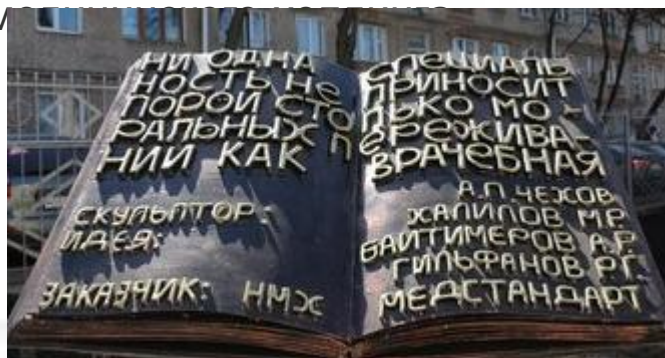 НИ ОДНА СПЕЦИАЛЬ
НОСТЬ НЕ ПРИНОСИТ
ПОРОЙ СТОЛЬКО МО-
РАЛЬНЫХ ПЕРЕЖИВА-
НИЙ КАК ВРАЧЕБНАЯ
А.П. ЧЕХОВ
СКУЛЬПТОР: ХАЛИЛОВ М.Р.
ИДЕЯ: БАЙТИМЕРОВ А.Р.
ГИЛЬФАНОВ Р.Г.
ЗАКАЗЧИК: НМХ МЕДСТАНДАРТ